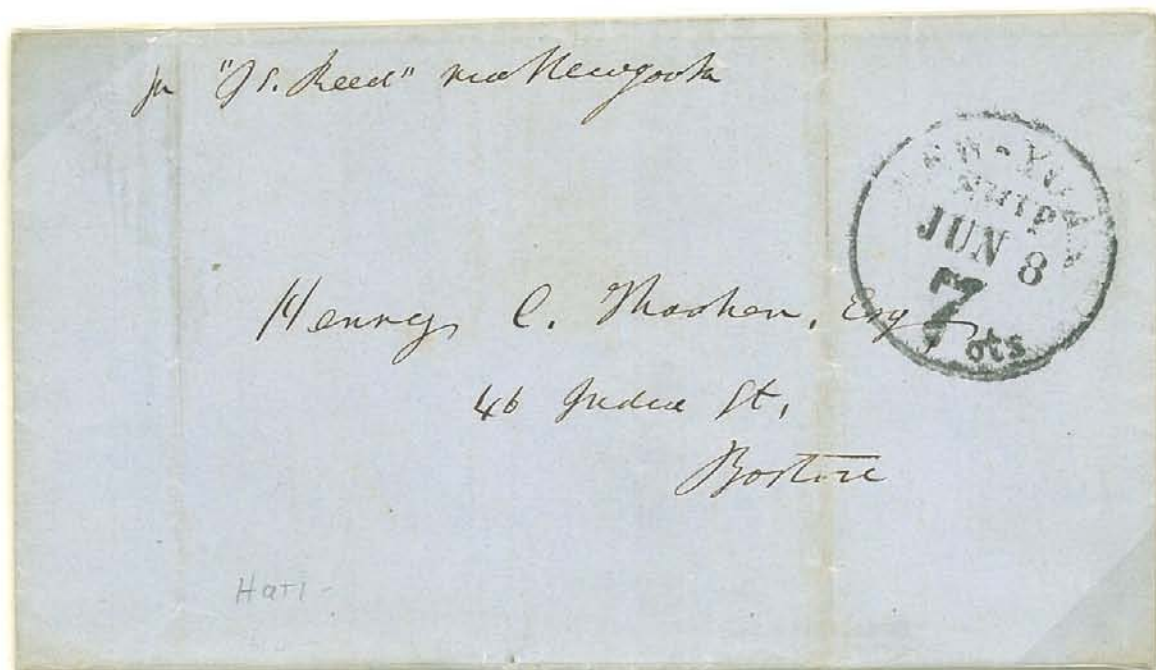 pr "J S. Reed" via Newyork
NEW-YORK
SHIP
JUN 8
7
cts
Henry C. Esq
46 India St,
Boston
Hati -